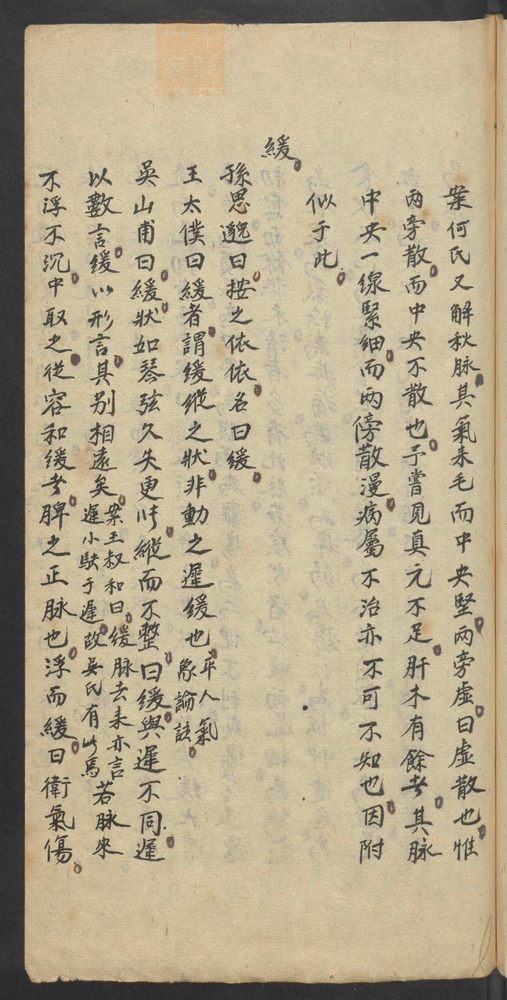 案何氏又解秋脉其氣来毛而中央堅兩旁虛曰虛散也惟
兩旁散而中央不散也予嘗見真元不足肝木有餘者其脉
中央一線緊細而兩傍散漫病屬不治亦不可不知也因附
似于此
緩
孫思邈曰按之依依名曰緩
王太僕曰緩者謂緩縱之状非動之遲緩也平人氣象論註
吳山甫曰緩状如琴弦久失更張縱而不整曰緩與遲不同遲
以數言緩以形言其別相遠矣案王叔和曰緩脉去来亦遲小駃于遲故吴氏有此言若脉来
不浮不沉中取之從容和緩者脾之正脉也浮而緩曰衛氣傷